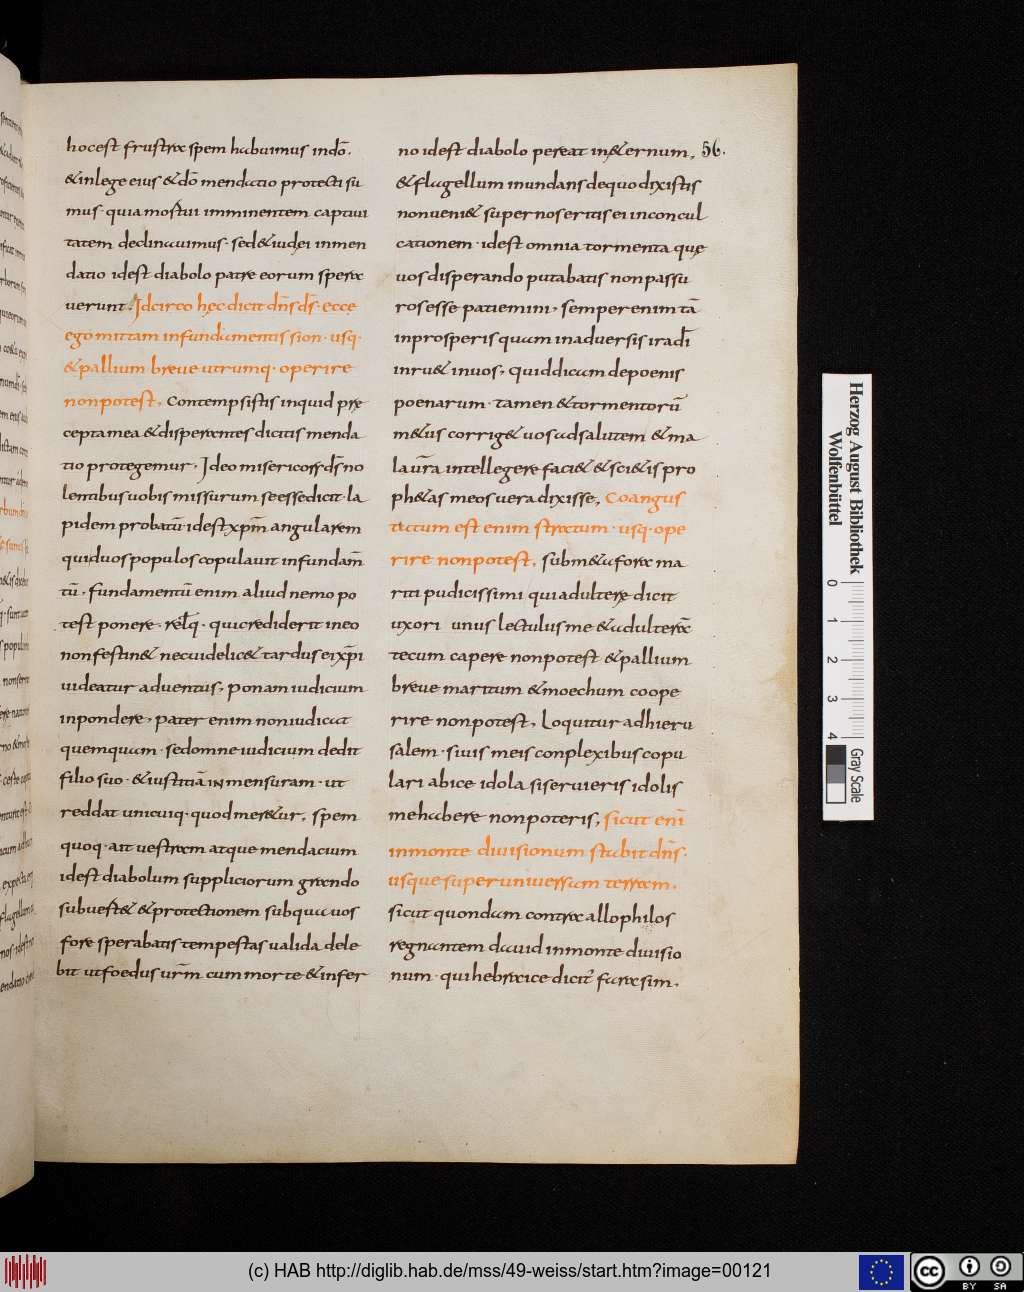 hocest frustra spem habuimus indō.
&inlege eius &dō mendatio protecti su
mus· quia mortui imminentem captiui
tatem declinauimus· sed&iudei inmen
datio idest diabolo patre eorum spera
uerunt. Idcirco hęc dicit dn̄s ds̄· ecce
ego mittam infundamentis sion· usq·
&pallium breue utrumq· operire
nonpotest, Contempsistis inquid pre
cepta mea &disperantes dicitis menda
tio protegemur, Ideo misericors ds̄ no
lentibus uobis missurum seesse dicit· la
pidem probatū· idest xpm̄ angularem
qui duos populos copulauit infundam̄
tū, fundamentū enim aliud nemo po
test ponere· rel̄q· qui crediderit in eo
non festin& nec uidelic& tardus ei xp̄i
uideatur aduentus, ponam iudicium
inpondere, pater enim non iudicat
quemquam· sed omne iudicium dedit
filio suo· &iustitiā in mensuram· ut
reddat unicuiq· quod mer&ur, spem
quoq· ait uestram atque mendacium
idest diabolum suppliciorum grando
subuert& &protectionem sub qua uos
fore sperabatis tempestas ualida dele
bit ut foedus ur̄m cum morte &infer
no idest diabolo pereat in&ernum, 56.
&flagellum inundans de quo dixistis
non ueni& super nos eritis ei in concul
cationem· idest omnia tormenta quę
uos disperando putabatis non passu
ros esse patiemini, semper enim tā
in prosperis quam in aduersis ira dī
inru& in uos, quid dicam de poenis
poenarum· tamen &tormentorū
m&us corrig& uos ad salutem &ma
la ur̄a intellegere faci& &sci&is pro
ph&as meos uera dixisse, Coangus
tatum est enim stratum· usq· ope
rire non potest, sub m&afora ma
riti pudicissimi qui adultere dicit
uxori unus lectulus me &adulterū
tecum capere non potest &pallium
breue maritum &moechum coope
rire non potest, Loquitur ad hieru
salem· si uis meis conplexibus copu
lari abice idola si seruieris idolis
me habere non poteris, sicut enī
in monte diuisionum stabit dn̄s·
usque super uniuersam terram,
sicut quondam contra allophilos
regnantem dauid in monte diuisio
num· qui hebraice dicit' farasim,
Herzog August Bibliothek
Wolfenbüttel
0
1
2
3
4
Gray Scale
(c) HAB http://diglib.hab.de/mss/49-weiss/start.htm?image=00121
cc
BY SA